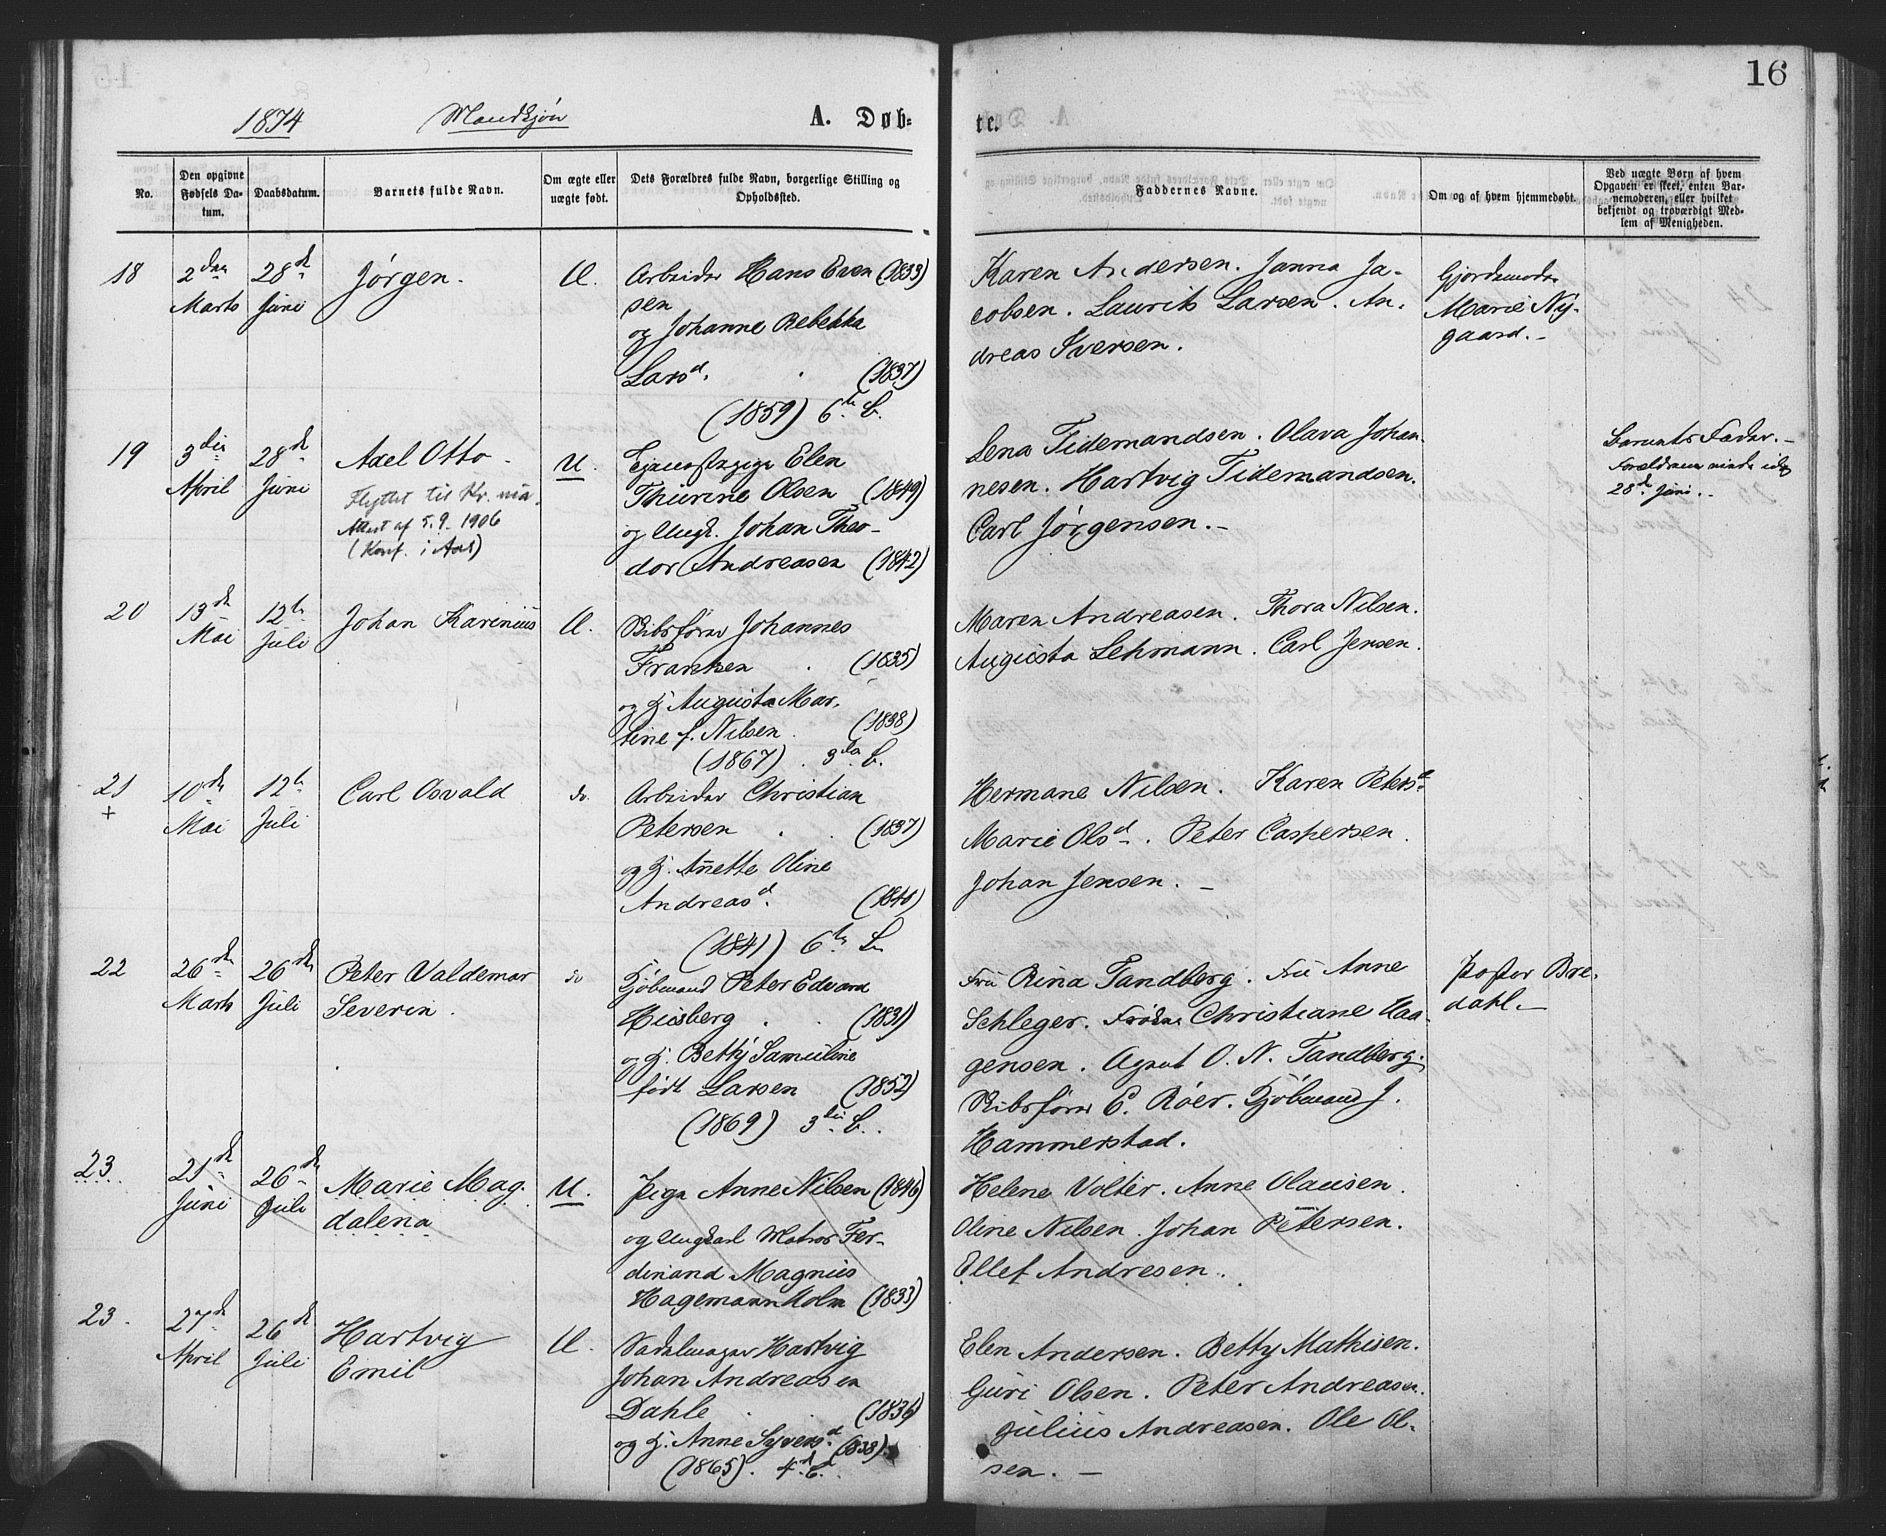 16
1874 Mandkjøn A. Døb-
te.
No.
Den opgivne
Fødsels Da-
tum.
Daabsdatum.
Barnets fulde Navn.
Om ægte eller
uægte født.
Dets Forældres fulde Navn, borgerlige Stilling og
Opholdssted.
Faddernes Navne.
Om og af hvem hjemmedøbt.
Ved uægte Børn af hvem
Opgaven er skeet, enten Bar-
nemoderen, eller hvilket
bekjendt og troværdigt Med-
lem af Menigheden.
18
2den
Marts
28de
Juni
Jørgen.
Æ.
Arbeider Hans Even (1833)
sen
og Johanne Rebekka
Larsd. (1837)
(1859) 6te B.
Karen Andersen. Janna Ja-
cobsen. Laurits Larsen. An-
dreas Iversen.
Gjordemoder
Marie Ny-
gaard.-
19
3die
April
28de
Juni
Axel Otto -
Flyttet til Kr.nia.
Attest af 5.9.1906
(Konf. i Aas)
U.
Elen
Thurine Olsen (1849)
og Ungk. Johan Theo-
dor Andreasen (1842)
Lena Tidemandsen. Olava Johan-
nesen. Hartvig Tidemandsen.
Carl Jørgensen.-
Barnets Fader.-
28de Juni.-
20
13de
Mai
12te
Juli
Johan Karinius
Æ.
Skibsfører Johannes
Franken (1835)
og H. Augusta Mar-
tine f. Nilsen (1838)
(1867) 3die B.
Maren Andreasen. Thora Nilsen.
Augusta Lehmann. Carl Jensen.
21
+
10de
Mai
12te
Juli
Carl Osvald
do.
Arbeider Christian
Petersen (1837)
og H. Anette Oline
Andreasd. (1840)
(1841) 6te B.
Hermane Nilsen. Karen Petersd.
Marie Olsd. Peter Caspersen.
Johan Jensen. -
22
26de
Marts
26de
Juli
Peter Valdemar
Severin.
do
Kjøbmand Peter Edvard
Huisberg (1831)
og H. Betty Samuline
født Larsen (1852)
(1869) 3die B.
Fru Rina Tandberg. Fru Anne
Schleger. Frøken Christiane Haa-
gensen. Agent O. N. Tandberg.
Skibsfører E. Røer. Kjøbmand J.
Hammerstad.
Pastor Bre-
dahl.-
23.
21de
Juni
26de
Juli
Marie Mag-
dalena
U.
Pige Anne Nilsen (1846)
og Ungkarl Matros Fer-
dinand Magnus
Hagemann Holm (1833)
Helene Volter. Anne Olausen.
Oline Nilsen. Johan Petersen.
Ellef Andresen.
23.
27de
April
26de
Juli
Hartvig
Emil
Æ.
Sadelmager Hartvig
Johan Andreasen
Dahle (1836)
og H. Anne Syversd. (1838)
(1865). 4de B.
Elen Andersen. Betty Mathisen.
Guri Olsen. Peter Andreasen.
Julius Andreasen. Ole Ol-
sen. -